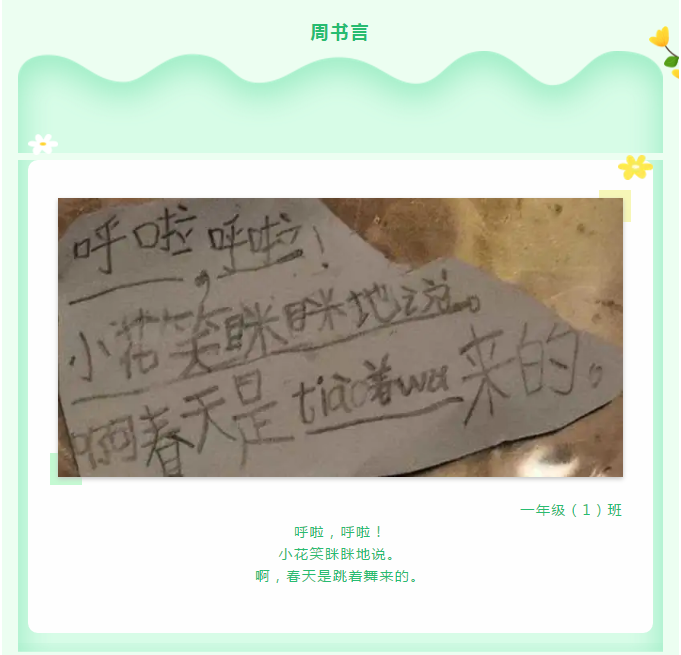 周书言
呼啦,呼啦!
小花笑眯眯地说。
啊春天是tiào着wu来的。
一年级(1)班
呼啦,呼啦!
小花笑眯眯地说。
啊,春天是跳着舞来的。